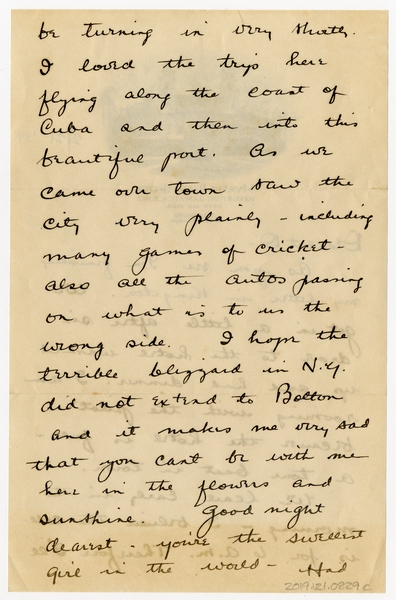 be turning in very shortly.
I loved the trip here
flying along the coast of
Cuba and then into this
beautiful port. As we
came over town saw the
city very plainly - including
many games of cricket -
also all the autos passing
on what is to us the
wrong side. I hope the
terrible blizzard in N.Y.
did not extend to Bolton
and it makes me very sad
that you cant be with me
here in the flowers and
sunshine. Good night
dearest - you're the sweetest
girl in the world - Had
2019.121.0229c